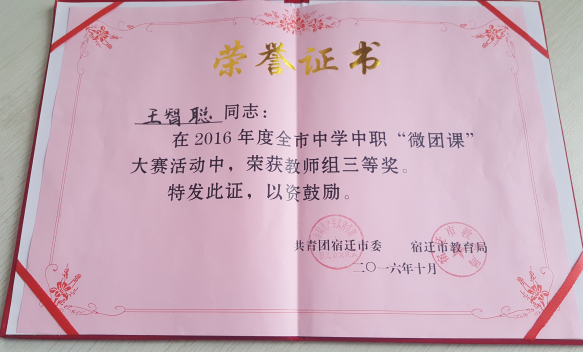 荣誉证书
王智聪 同志：
在2016年度全市中学中职“微团课”
大赛活动中，荣获教师组三等奖。
特发此证，以资鼓励。
共青团宿迁市委 宿迁市教育局
二〇一六年十月